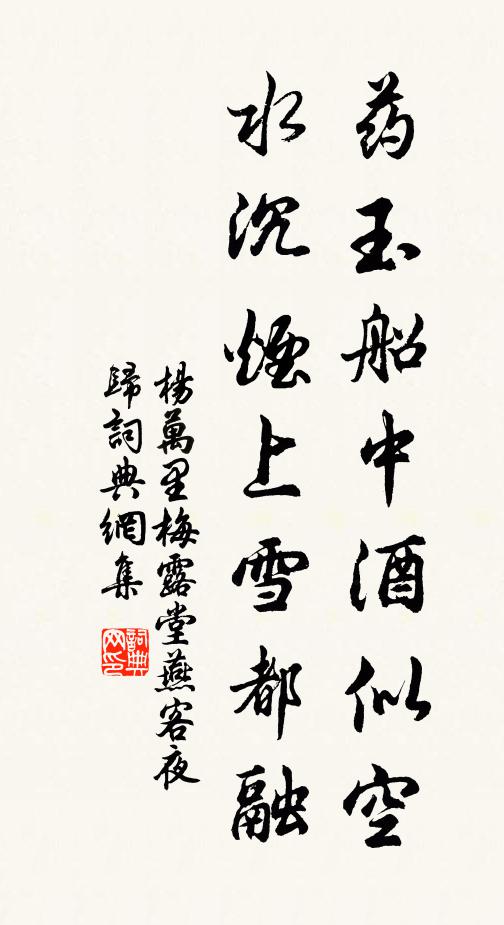 药玉船中酒似空
水沉烟上雪都融
楊萬里梅露堂燕客夜
歸詞典網集
詞典
网印